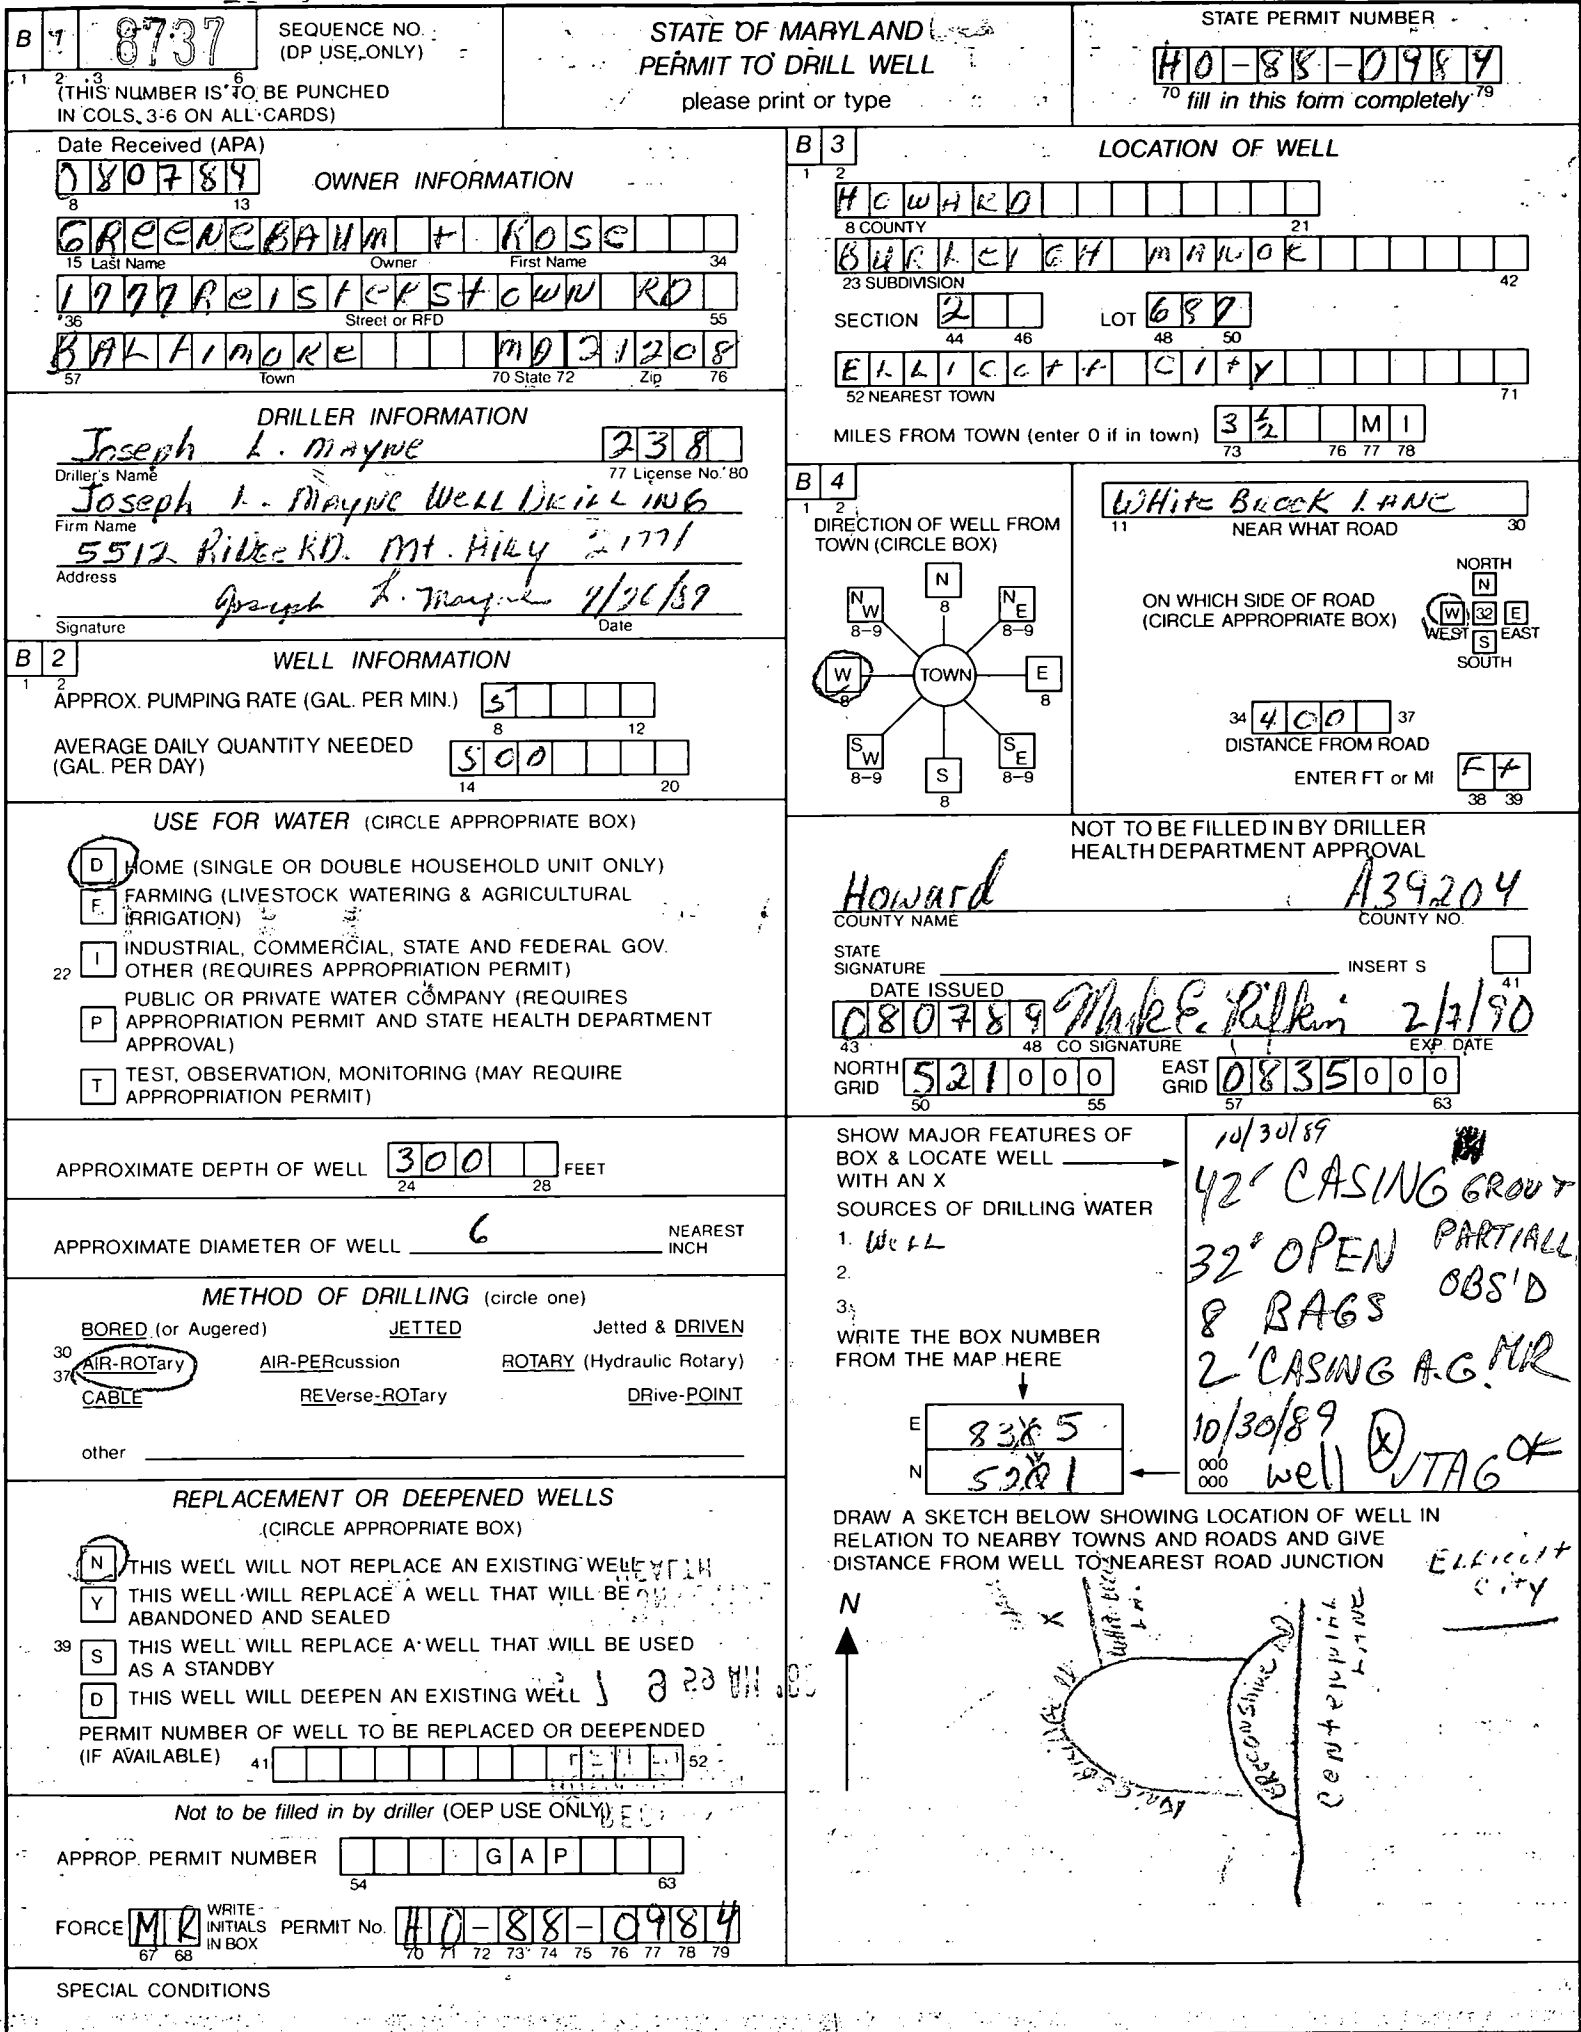 B 1 8737 SEQUENCE NO. (DP USE ONLY)
1 2 3 6
(THIS NUMBER IS TO BE PUNCHED
IN COLS. 3-6 ON ALL CARDS)
STATE OF MARYLAND
PERMIT TO DRILL WELL
please print or type
STATE PERMIT NUMBER
HO-88-0984
70 fill in this form completely 79
Date Received (APA)
080789
8 13
OWNER INFORMATION
GREENEBAUM + ROSE
15 Last Name Owner First Name 34
1777 REISTERSTOWN RD
36 Street or RFD 55
BALTIMORE MD 21208
57 Town 70 State 72 Zip 76
DRILLER INFORMATION
Joseph L. MAYNE 238
Driller's Name 77 License No. 80
Joseph L. MAYNE WELL DRILLING
Firm Name
5512 Ridge RD. Mt. Airy 21771
Address
Joseph L. Mayne 7/26/89
Signature Date
B 2 WELL INFORMATION
1 2
APPROX. PUMPING RATE (GAL. PER MIN.) 5
8 12
AVERAGE DAILY QUANTITY NEEDED
(GAL. PER DAY) 500
14 20
USE FOR WATER (CIRCLE APPROPRIATE BOX)
D HOME (SINGLE OR DOUBLE HOUSEHOLD UNIT ONLY)
F FARMING (LIVESTOCK WATERING & AGRICULTURAL
IRRIGATION)
22 I INDUSTRIAL, COMMERCIAL, STATE AND FEDERAL GOV.
OTHER (REQUIRES APPROPRIATION PERMIT)
P PUBLIC OR PRIVATE WATER COMPANY (REQUIRES
APPROPRIATION PERMIT AND STATE HEALTH DEPARTMENT
APPROVAL)
T TEST, OBSERVATION, MONITORING (MAY REQUIRE
APPROPRIATION PERMIT)
APPROXIMATE DEPTH OF WELL 300 FEET
24 28
APPROXIMATE DIAMETER OF WELL 6 NEAREST INCH
METHOD OF DRILLING (circle one)
BORED (or Augered) JETTED Jetted & DRIVEN
30 AIR-ROTary AIR-PERcussion ROTARY (Hydraulic Rotary)
37 CABLE REVerse-ROTary DRive-POINT
other
REPLACEMENT OR DEEPENED WELLS
(CIRCLE APPROPRIATE BOX)
N THIS WELL WILL NOT REPLACE AN EXISTING WELL
Y THIS WELL WILL REPLACE A WELL THAT WILL BE
ABANDONED AND SEALED
39 S THIS WELL WILL REPLACE A WELL THAT WILL BE USED
AS A STANDBY
D THIS WELL WILL DEEPEN AN EXISTING WELL
PERMIT NUMBER OF WELL TO BE REPLACED OR DEEPENDED
(IF AVAILABLE) 41 52
Not to be filled in by driller (OEP USE ONLY)
APPROP. PERMIT NUMBER GAP
54 63
FORCE MR WRITE INITIALS IN BOX PERMIT No. HO-88-0984
67 68 70 71 72 73 74 75 76 77 78 79
SPECIAL CONDITIONS
B 3 LOCATION OF WELL
1 2
HOWARD
8 COUNTY 21
BURLEIGH MANOR
23 SUBDIVISION 42
SECTION 2 LOT 687
44 46 48 50
ELLICOTT CITY
52 NEAREST TOWN 71
MILES FROM TOWN (enter 0 if in town) 3 1/2 MI
73 76 77 78
B 4
1 2
DIRECTION OF WELL FROM
TOWN (CIRCLE BOX)
N 8
NW 8-9
NE 8-9
W 8
TOWN
E 8
SW 8-9
S 8
SE 8-9
WHITE BROOK LANE
11 NEAR WHAT ROAD 30
ON WHICH SIDE OF ROAD
(CIRCLE APPROPRIATE BOX)
NORTH
N
W 32 E
WEST S EAST
SOUTH
34 400 37
DISTANCE FROM ROAD
ENTER FT or MI Ft
38 39
NOT TO BE FILLED IN BY DRILLER
HEALTH DEPARTMENT APPROVAL
Howard A39204
COUNTY NAME COUNTY NO.
STATE
SIGNATURE INSERT S
41
DATE ISSUED
080789 Mark E. Rifkin 2/7/90
43 48 CO SIGNATURE EXP. DATE
NORTH GRID 521000 EAST GRID 0835000
50 55 57 63
SHOW MAJOR FEATURES OF
BOX & LOCATE WELL
WITH AN X
SOURCES OF DRILLING WATER
1. WELL
2.
3.
WRITE THE BOX NUMBER
FROM THE MAP HERE
E 835
N 521
10/30/89
42' CASING GROUT
32' OPEN PARTIALL
8 BAGS OBS'D
2' CASING A.G. MR
10/30/89
000
000 well X √TAG OK
DRAW A SKETCH BELOW SHOWING LOCATION OF WELL IN
RELATION TO NEARBY TOWNS AND ROADS AND GIVE
DISTANCE FROM WELL TO NEAREST ROAD JUNCTION
Ellicott
City
N
X
Centennial
LANE